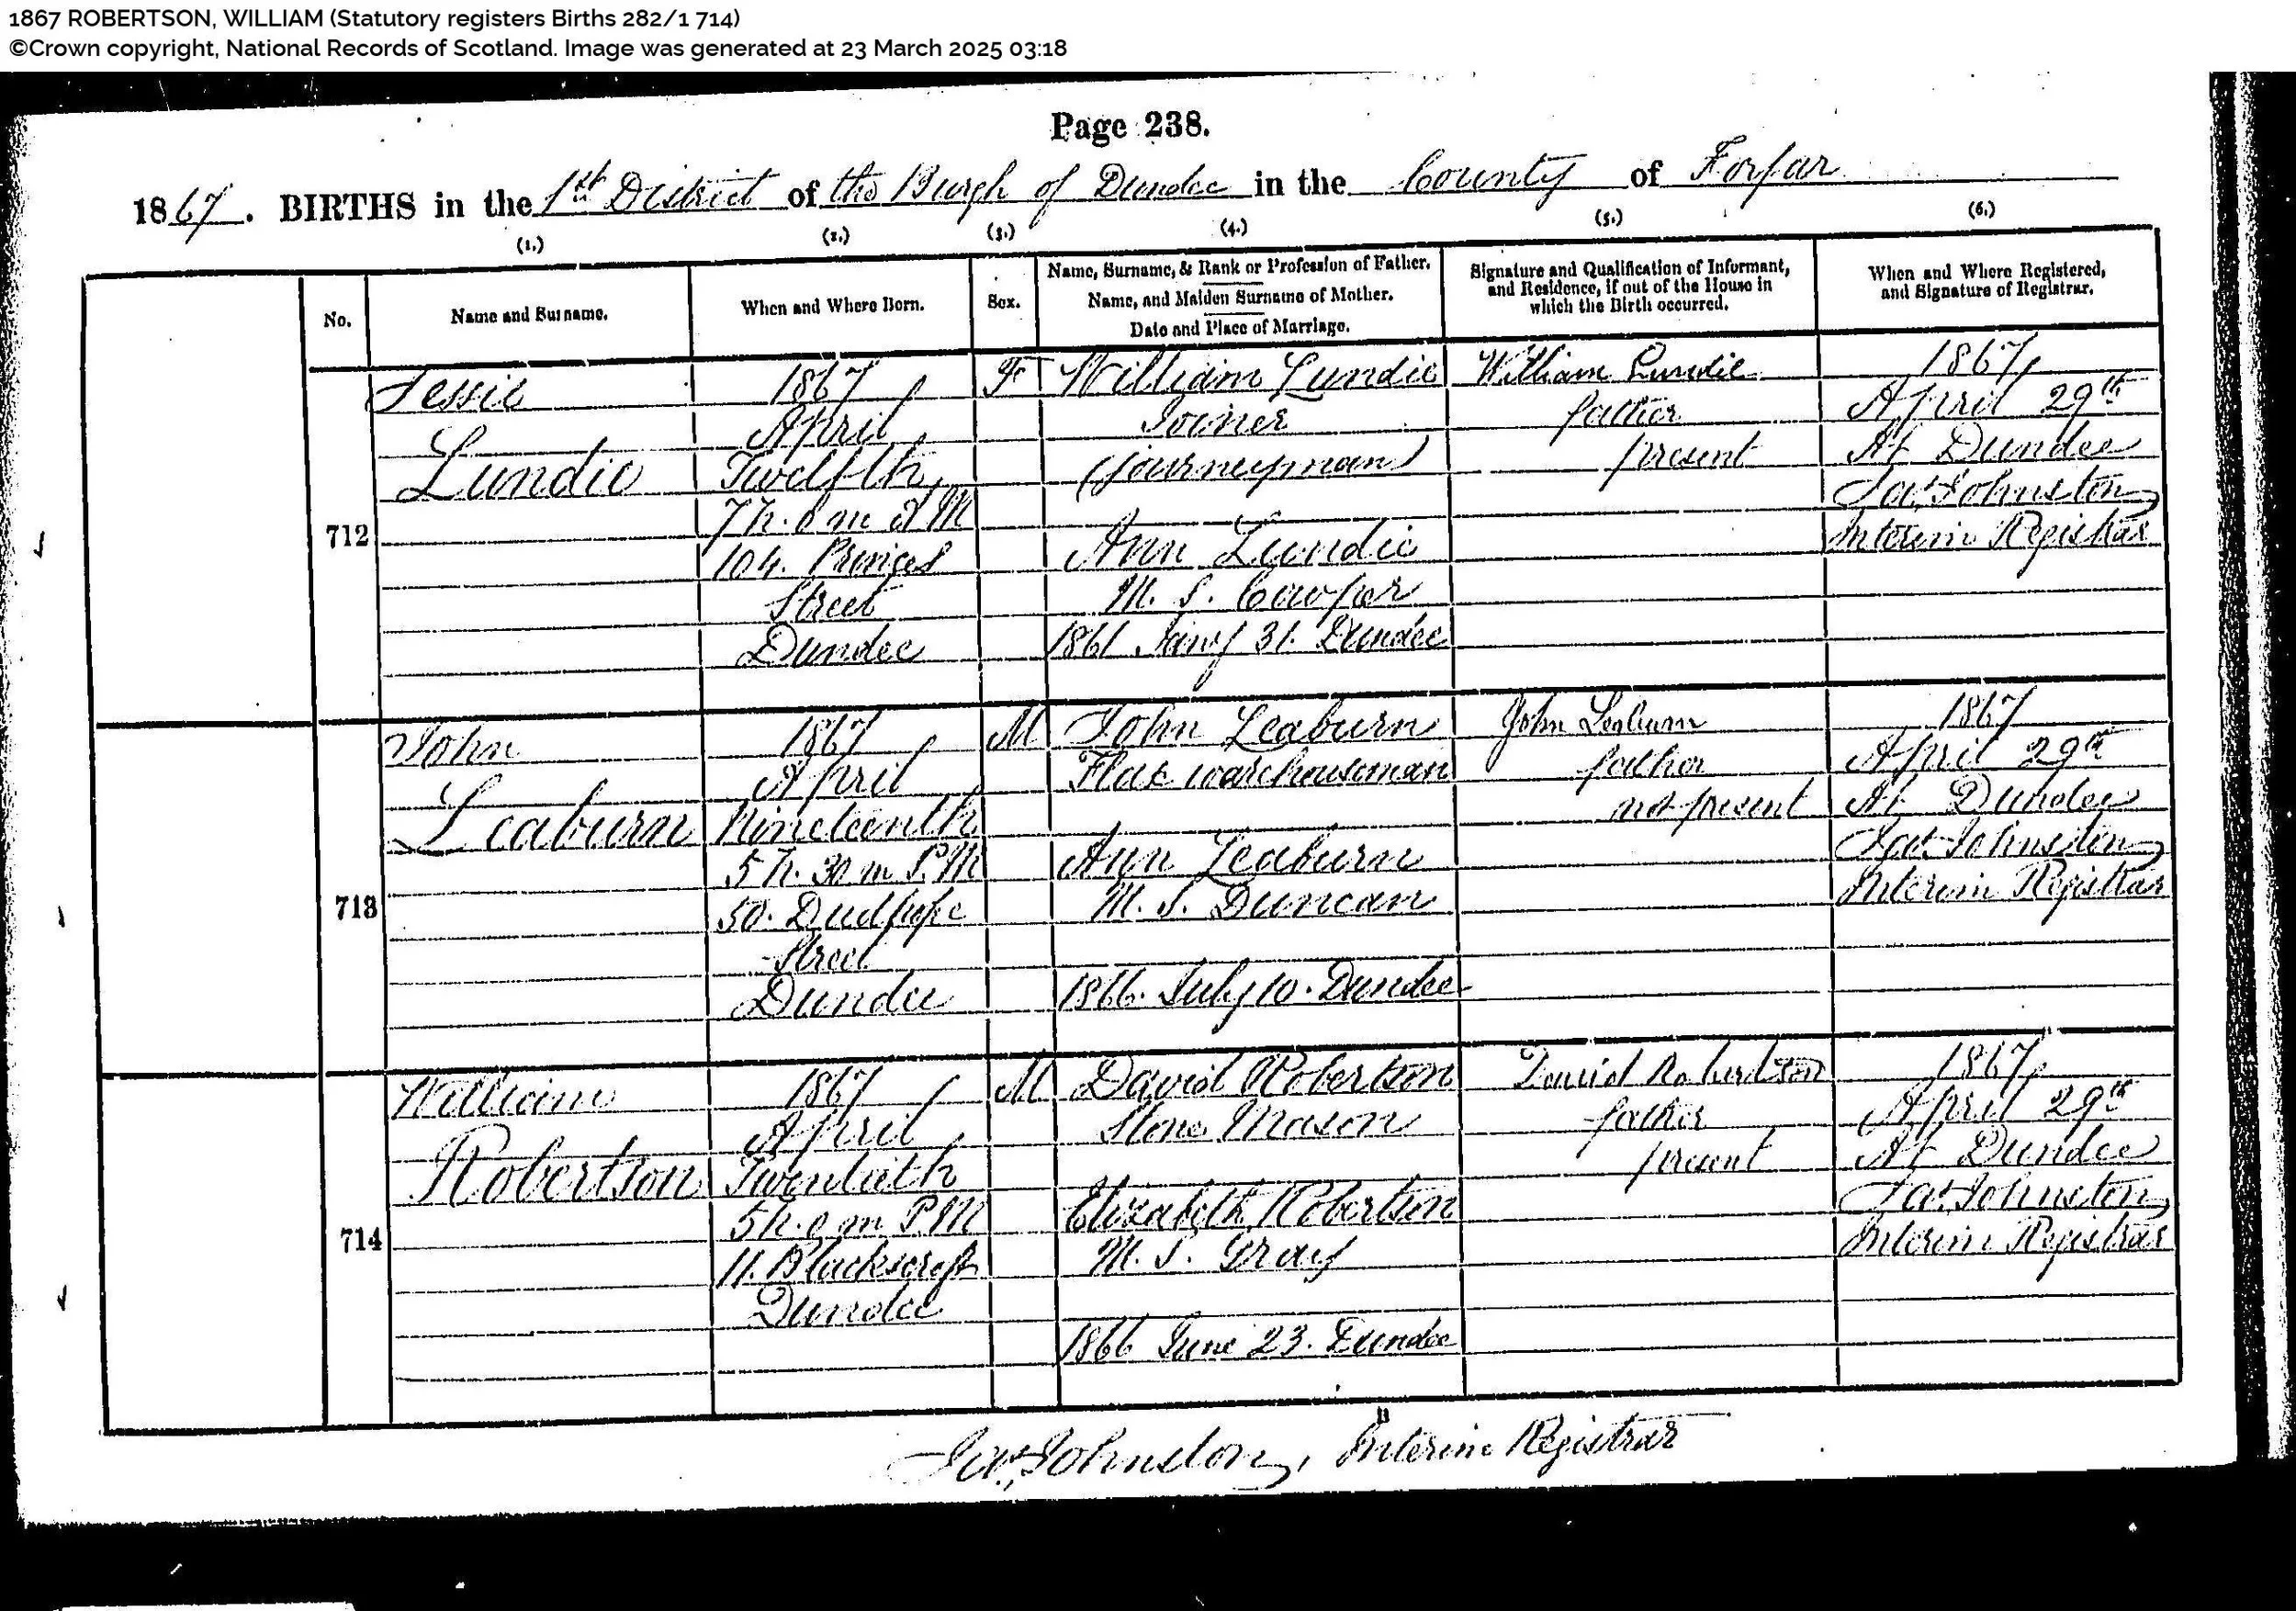 1867 ROBERTSON, WILLIAM (Statutory registers Births 282/1 714)
©Crown copyright, National Records of Scotland. Image was generated at 23 March 2025 03:18
Page 238.
1867. BIRTHS in the 1st District of the Burgh of Dundee in the County of Forfar
(1.) (2.) (3.) (4.) (5.) (6.)
No.
Name and Surname.
When and Where Born.
Sex.
Name, Surname, & Rank or Profession of Father.
Name, and Maiden Surname of Mother.
Date and Place of Marriage.
Signature and Qualification of Informant,
and Residence, if out of the House in
which the Birth occurred.
When and Where Registered,
and Signature of Registrar.
712
Jessie
Lundie
1867
April
Twelfth
7 h. 0 m. M
104. Princes
Street
Dundee
F
William Lundie
Joiner
(journeyman)
Ann Lundie
M. S. Cowper
1861 Jany 31. Dundee
William Lundie
father
present
1867,
April 29th
At Dundee
Jas. Johnston
Interim Registrar
713
John
Leaburn
1867
April
Nineteenth
5 h. 30 m P.M
50. Dudhope
Street
Dundee
M
John Leaburn
Flax warehouseman
Ann Leaburn
M. S. Duncan
1866. July 10. Dundee
John Leaburn
father
not present
1867
April 29th
At Dundee
Jas. Johnston
Interim Registrar
714
William
Robertson
1867
April
Twentieth
5 h. 0 m P.M
11. Blackscroft
Dundee
M
David Robertson
Stone Mason
Elizabeth Robertson
M. S. Gray
1866 June 23. Dundee
David Robertson
father
present
1867,
April 29th
At Dundee
Jas. Johnston
Interim Registrar
Jas. Johnston, Interim Registrar